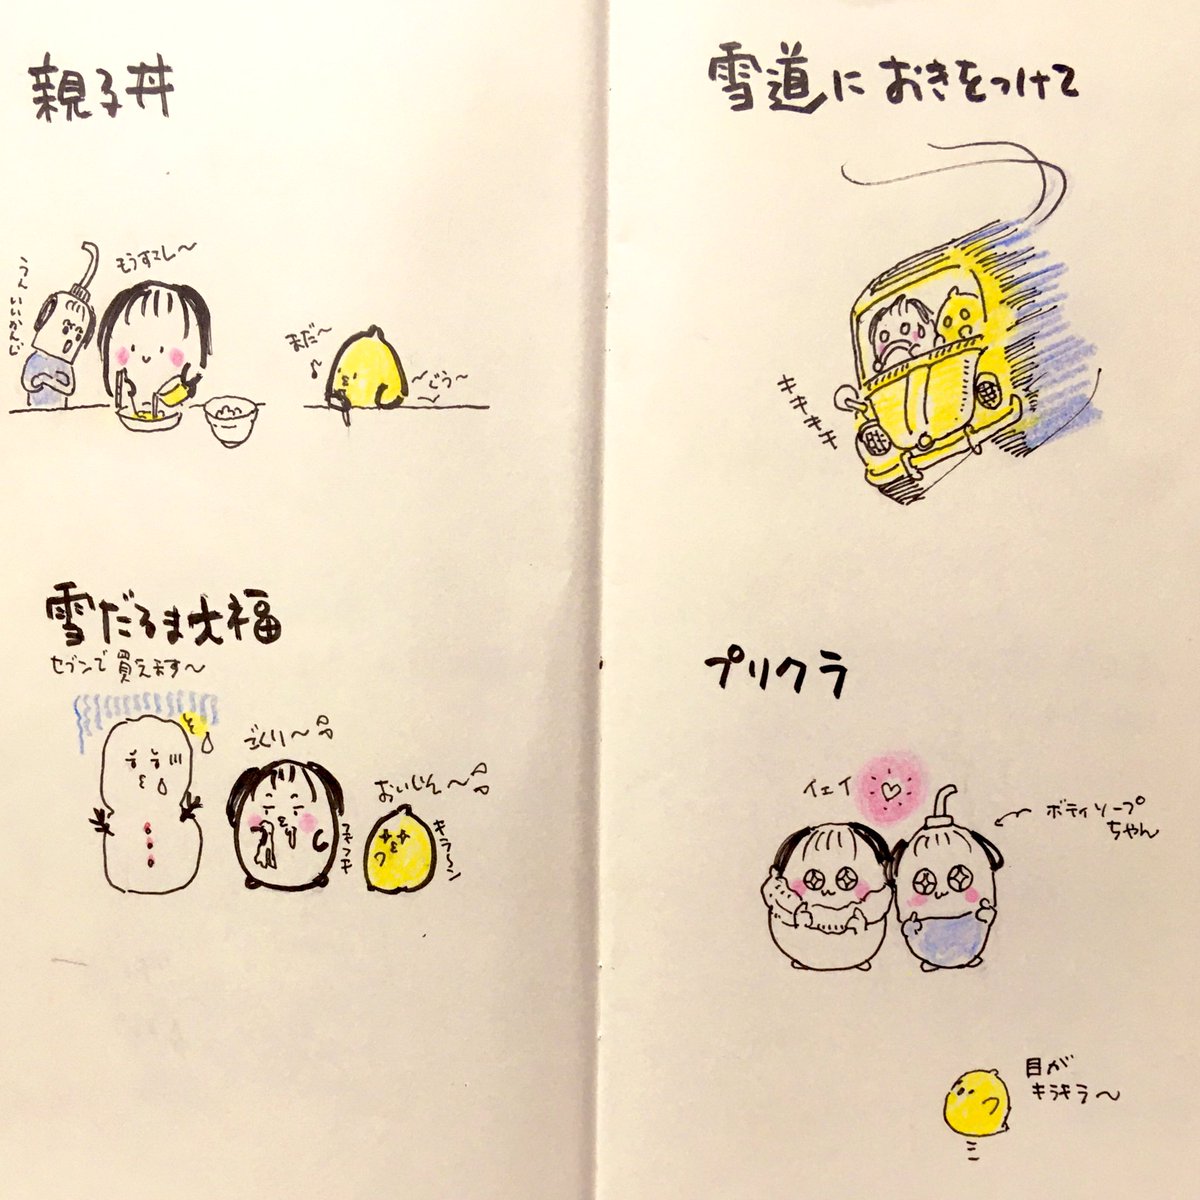 親子丼
もうすこし〜
うんいいかんじ
まだ〜
雪だるま大福
セブンで買えます〜
ごくり〜
おいしそ〜
キラーン
雪道におきをつけて
キキキキ
プリクラ
イェイ
ボディソープ
ちゃん
目が
キラキラ〜